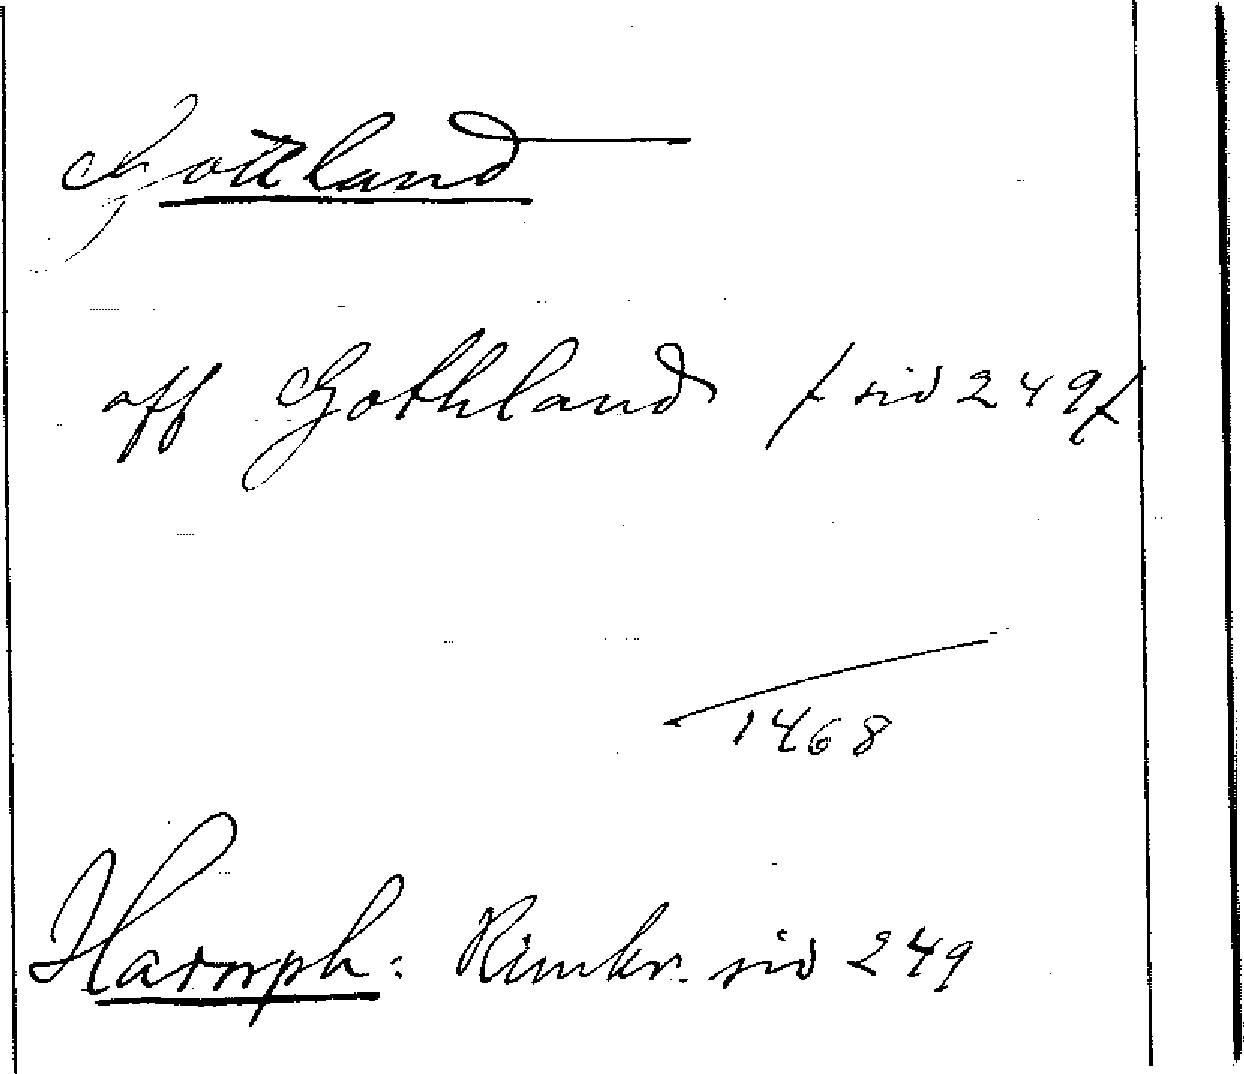 Gottland
aff Gothland / sid 249 /
1468
Hadorph: Rimkr. sid 249